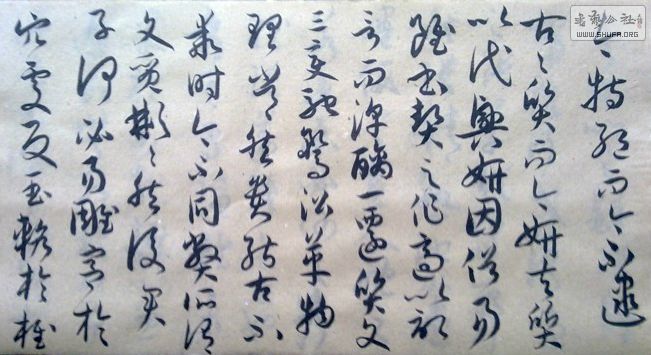 今特絕而今不逮
古々質而今妍夫質
以代興妍因俗易
雖書契之作適以記
言而淳醨一遷質文
三變馳鶩沿革物
理常然貴能古不
乖時今不同弊所謂
文質彬々然後君
子何必易雕宮於
穴處反玉輅於椎
www.SHUFA.ORG